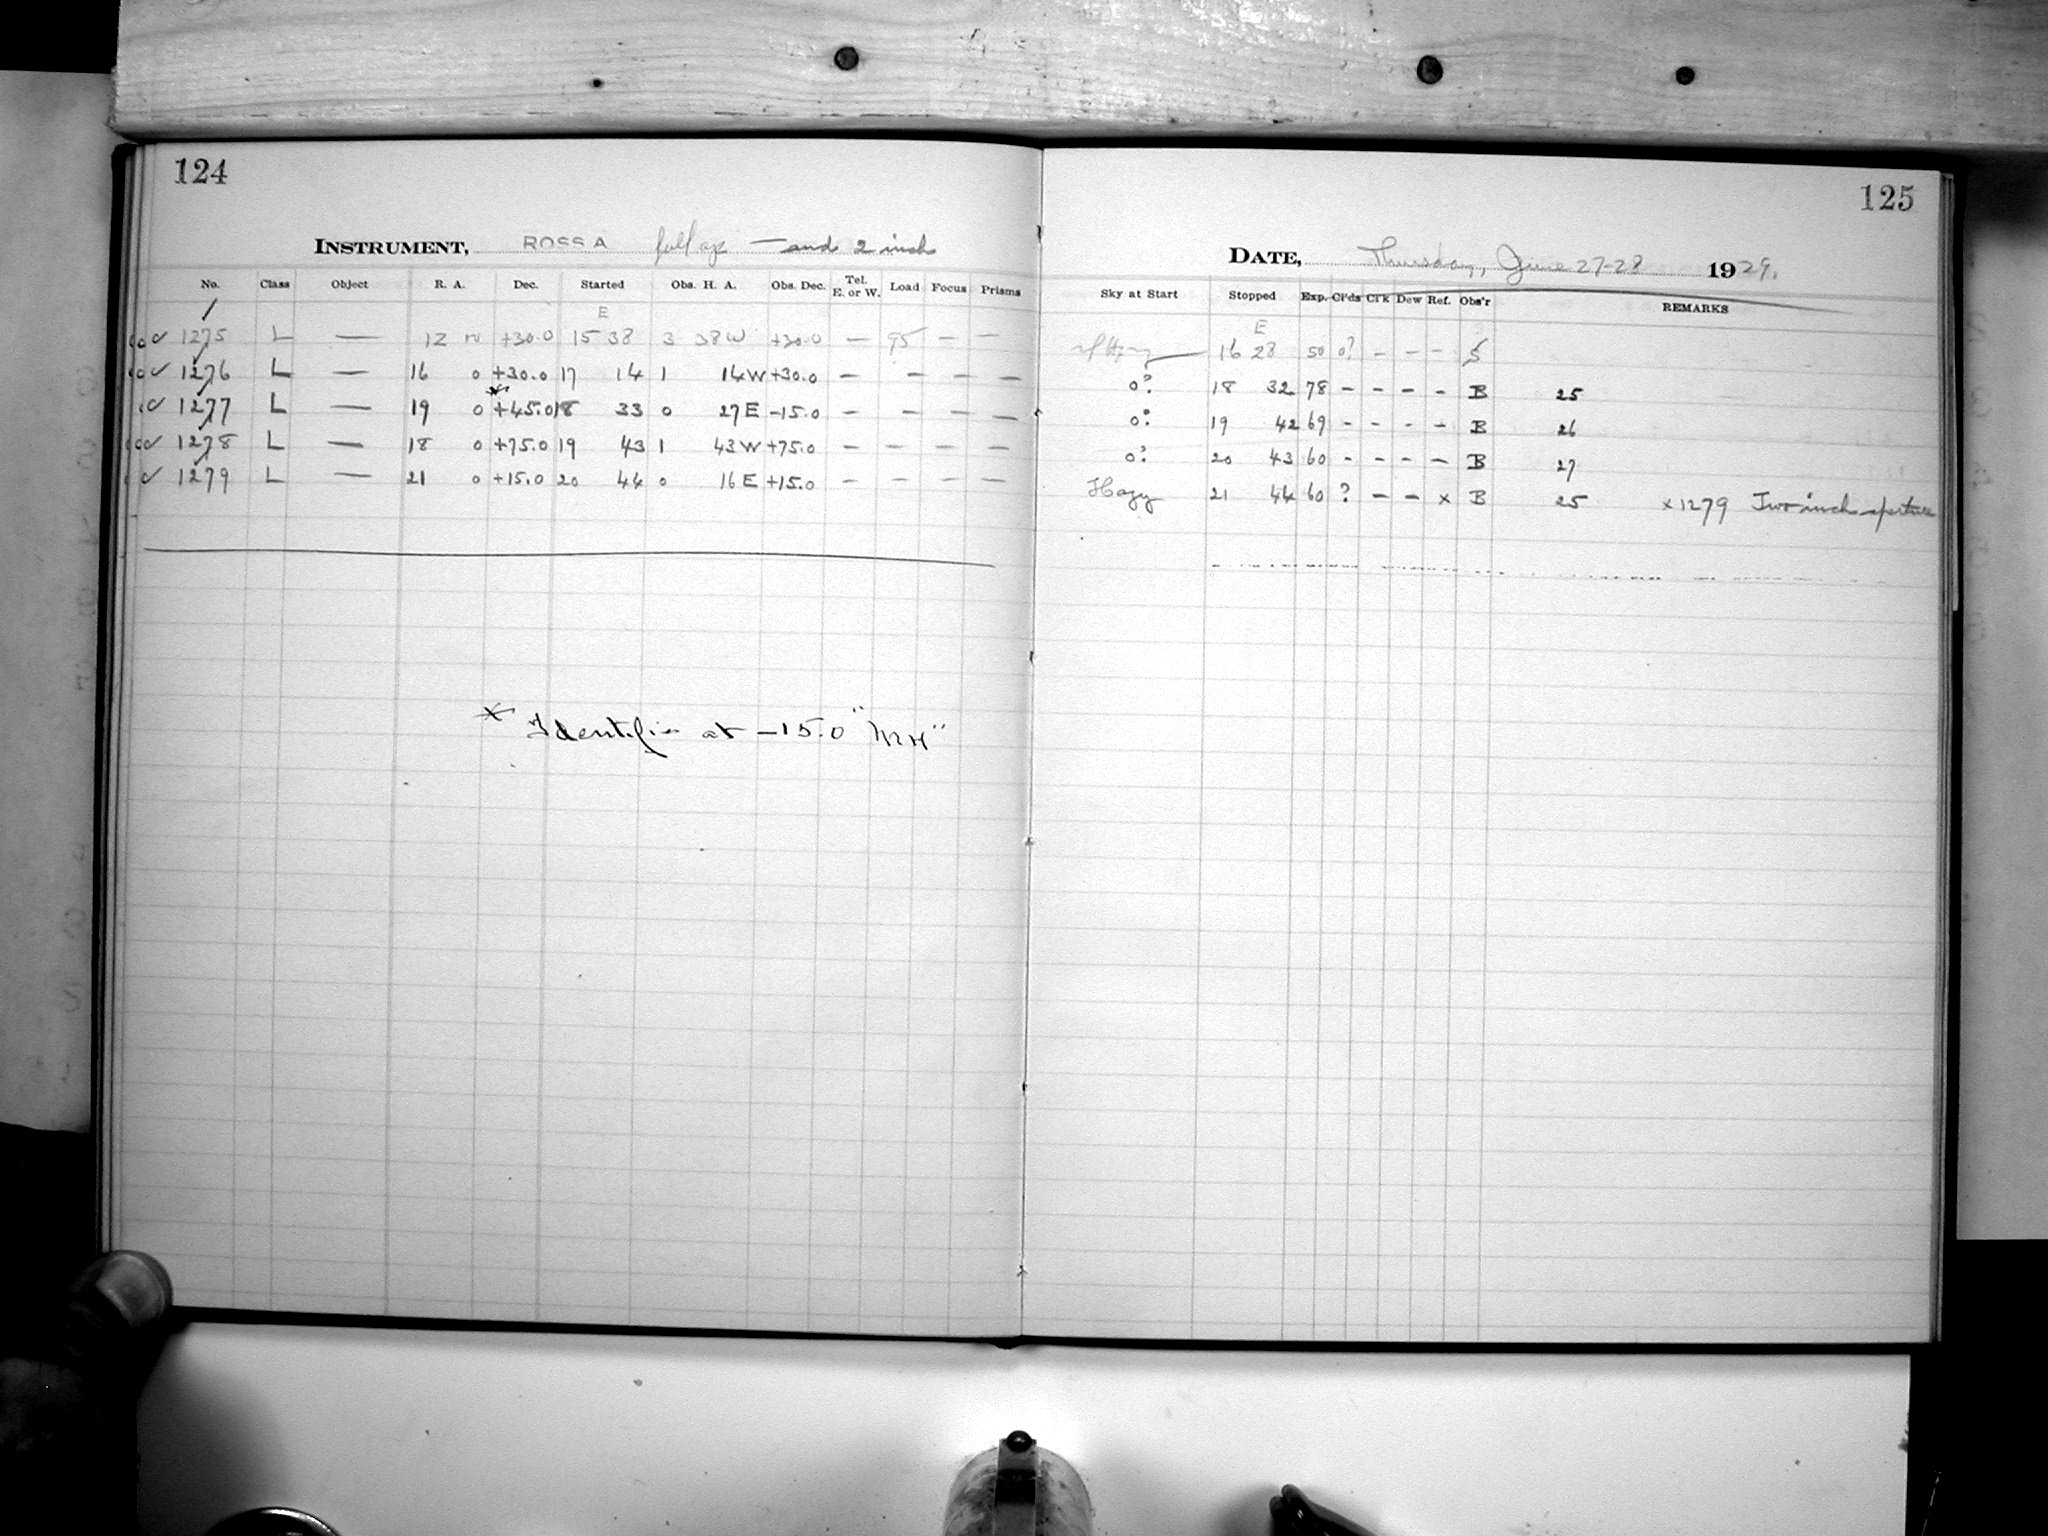 124
INSTRUMENT, ROSS A full ap — and 2 inch
No. Class Object R. A. Dec. Started Obs. H. A. Obs. Dec. Tel. E. or W. Load Focus Prisms
E
✓ 1275 L — 12 +30.0 15 38 3 38W +30.0 — 95 — —
✓ 1276 L — 16 0 +30.0 17 14 1 14W +30.0 — — — —
*
✓ 1277 L — 19 0 +45.0 18 33 0 27E -15.0 — — — —
✓ 1278 L — 18 0 +75.0 19 43 1 43W +75.0 — — — —
✓ 1279 L — 21 0 +15.0 20 44 0 16E +15.0 — — — —
* Identifies at -15.0
125
DATE, Thursday, June 27-28 1929.
Sky at Start Stopped Exp. Cl'ds Cl'k Dew Ref. Obs'r REMARKS
E
16 28 50 0? — — — S
0? 18 32 78 — — — — B 25
0? 19 42 69 — — — — B 26
0? 20 43 60 — — — — B 27
Hazy 21 44 60 ? — — x B 25 x 1279 Two inch aperture